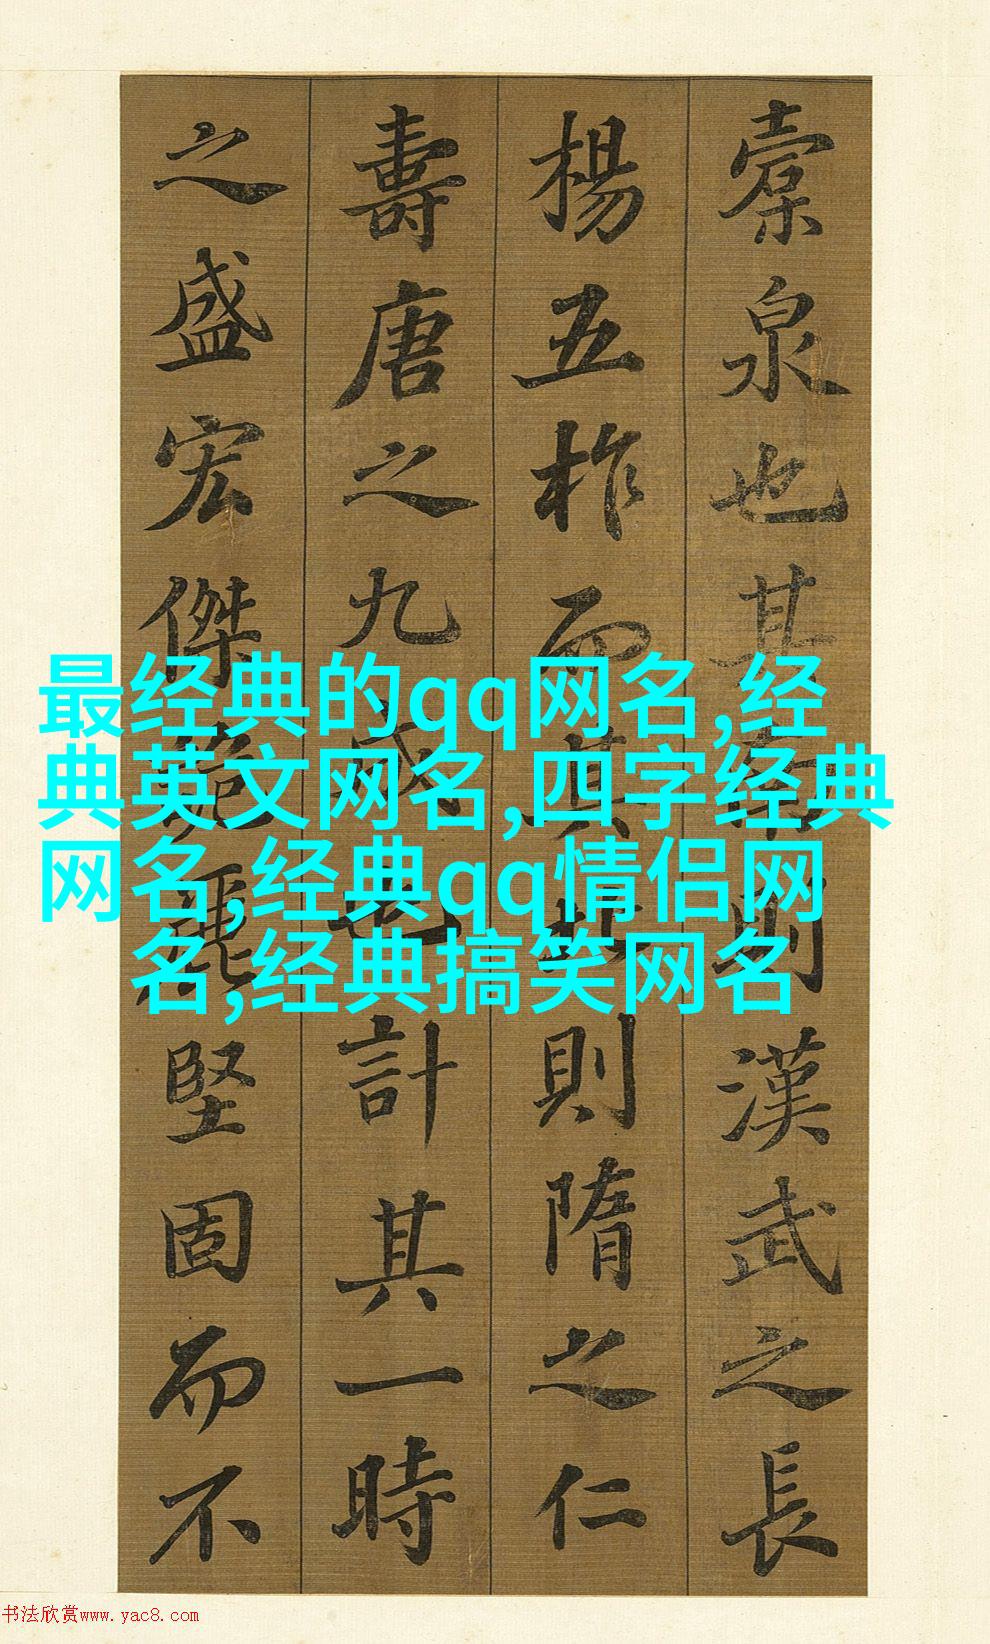 最经典的qq网名,经
典英文网名,四字经典
网名,经典qq情侣网
名,经典搞笑网名
槖泉也其南則漢武之長
楊五柞而其北則隋之仁
壽唐之九成也計其一時
之盛宏傑詭麗堅固而不
书法欣赏www.yac8.com